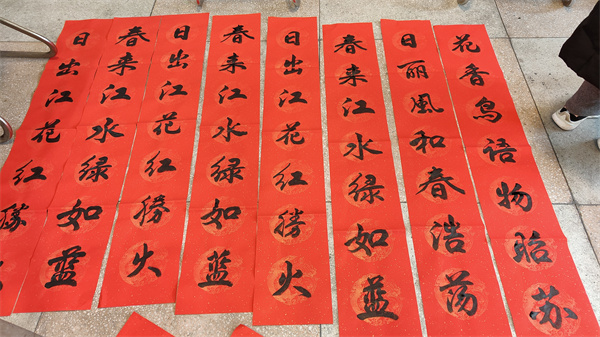 日出江花红勝
春来江水绿如蓝
日出江花红勝火
春来江水绿如蓝
日出江花红勝火
春来江水绿如蓝
日丽風和春浩荡
花香鸟语物昭苏